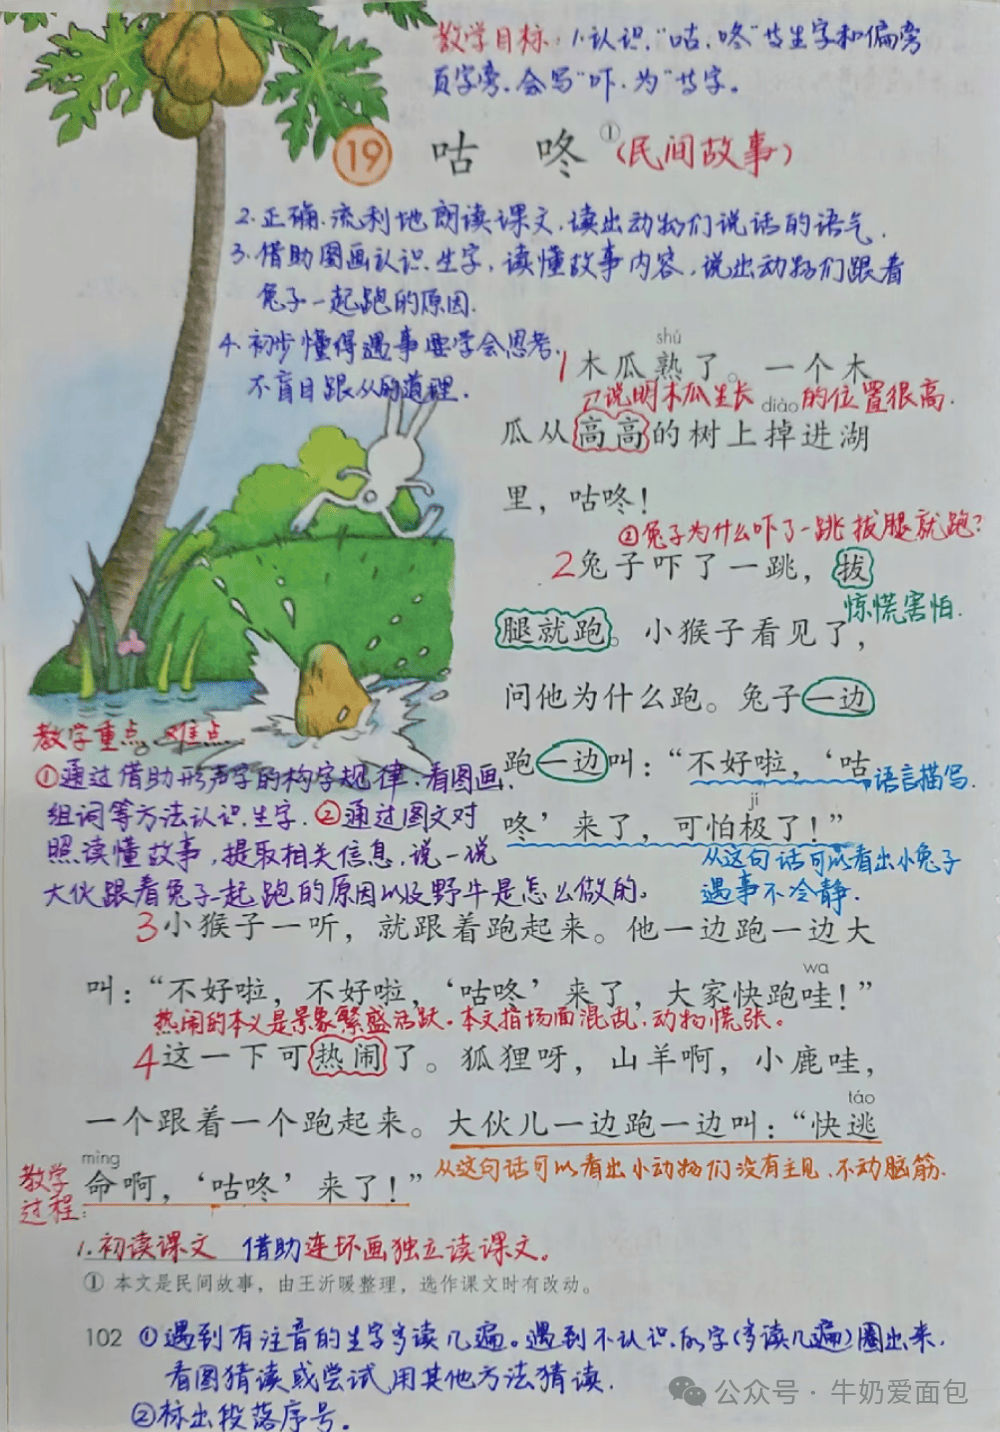 教学目标：1.认识“咕、咚”等生字和偏旁
页字旁。会写“吓、为”等字。
19 咕咚①（民间故事）
2.正确、流利地朗读课文，读出动物们说话的语气.
3.借助图画认识生字，读懂故事内容，说出动物们跟着
兔子一起跑的原因.
4.初步懂得遇事要学会思考，
不盲目跟从的道理.
shú
1木瓜熟了。一个木
说明木瓜生长的位置很高.
diào
瓜从高高的树上掉进湖
里，咕咚！
②兔子为什么吓了一跳拔腿就跑？
2兔子吓了一跳，拔
惊慌害怕.
腿就跑。小猴子看见了，
问他为什么跑。兔子一边
跑一边叫：“不好啦，‘咕
语言描写.
jí
咚’来了，可怕极了！”
从这句话可以看出小兔子
遇事不冷静.
教学重点、难点
①通过借助形声字的构字规律、看图画、
组词等方法认识生字.②通过图文对
照读懂故事，提取相关信息，说一说
大伙跟着兔子一起跑的原因以及野牛是怎么做的。
3小猴子一听，就跟着跑起来。他一边跑一边大
wa
叫：“不好啦，不好啦，‘咕咚’来了，大家快跑哇！”
热闹的本义是景象繁盛活跃。本文指场面混乱，动物慌张。
4这一下可热闹了。狐狸呀，山羊啊，小鹿哇，
一个跟着一个跑起来。大伙儿一边跑一边叫：“快逃
táo
mìng
命啊，‘咕咚’来了！”
从这句话可以看出小动物们没有主见、不动脑筋.
教学
过程：
1.初读课文 借助连环画独立读课文。
① 本文是民间故事，由王沂暖整理，选作课文时有改动。
102
①遇到有注音的生字多读几遍。遇到不认识的字(多读几遍)圈出来，
看图猜读或尝试用其他方法猜读.
②标出段落序号。
公众号·牛奶爱面包